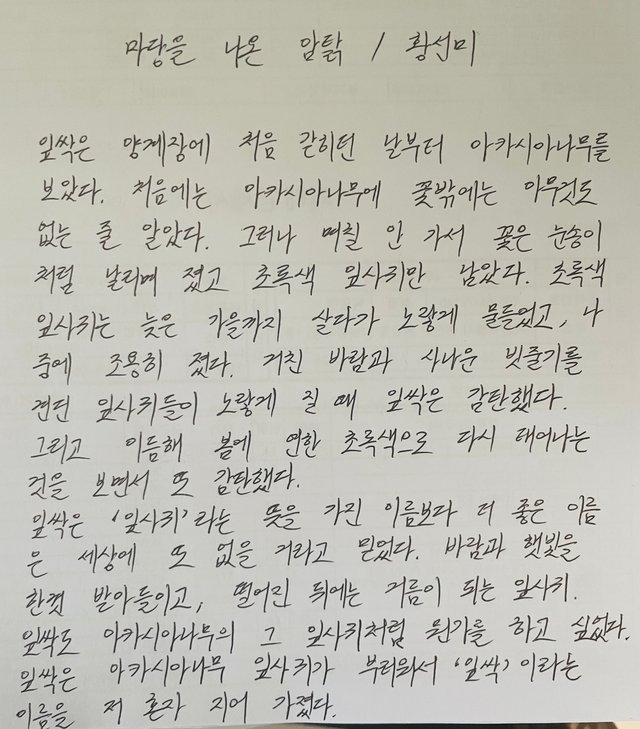 마당을 나온 암탉 / 황선미
잎싹은 양계장에 처음 갇히던 날부터 아카시아나무를
보았다. 처음에는 아카시아나무에 꽃밖에는 아무것도
없는 줄 알았다. 그러나 며칠 안 가서 꽃은 눈송이
처럼 날리며 졌고 초록색 잎사귀만 남았다. 초록색
잎사귀는 늦은 가을까지 살다가 노랗게 물들었고, 나
중에 조용히 졌다. 거친 바람과 사나운 빗줄기를
견딘 잎사귀들이 노랗게 질 때 잎싹은 감탄했다.
그리고 이듬해 봄에 연한 초록색으로 다시 태어나는
것을 보면서 또 감탄했다.
잎싹은 '잎사귀'라는 뜻을 가진 이름보다 더 좋은 이름
은 세상에 또 없을 거라고 믿었다. 바람과 햇빛을
한껏 받아들이고, 떨어진 뒤에는 거름이 되는 잎사귀.
잎싹도 아카시아나무의 그 잎사귀처럼 뭔가를 하고 싶었다.
잎싹은 아카시아나무 잎사귀가 부러워서 '잎싹'이라는
이름을 저 혼자 지어 가졌다.